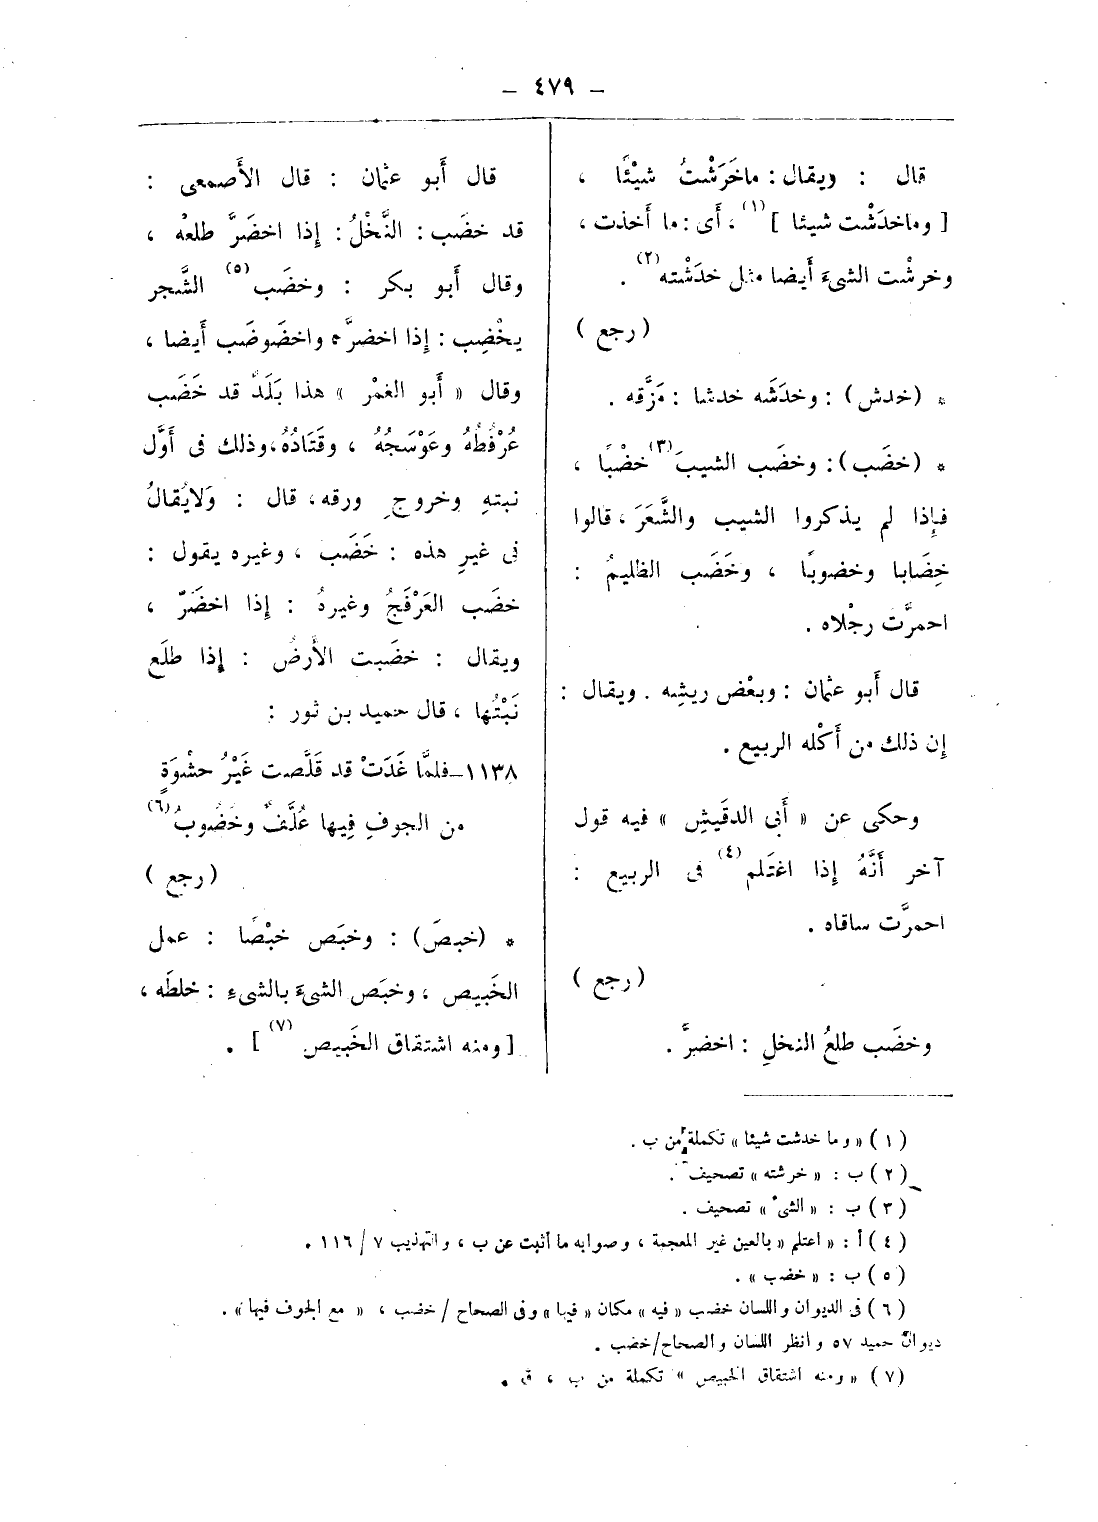 – ٤٧٩ –
قال : ويقال: ماخَرَشْتُ شيْئًا ،
[ وماخدَشْت شيئا ] (١) ، أَى : ما أَخذت ،
وخرشْت الشىءَ أَيضا مثل خدَشْته (٢) .
( رجع )
* (خدش) : وخدَشَه خدشا : مَزَّقه .
* (خضَب) : وخضَب الشيبَ (٣) خضْبًا ،
فإِذا لم يذكروا الشيب والشَّعَرَ ، قالوا
خِضَابا وخضوبًا ، وخَضَب الظليمُ :
احمرَّت رجْلاه .
قال أَبو عثمان : وبعْض ريشِه . ويقال :
إن ذلك من أَكْله الربيع .
وحكى عن « أَبى الدقَيشِ » فيه قول
آخر أَنَّهُ إذا اغتَلم (٤) فى الربيع :
احمرَّت ساقاه .
( رجع )
وخضَب طلعُ النخلِ : اخضرَّ .
قال أَبو عثمان : قال الأَصمعى :
قد خضَب : النَّخْلُ : إذا اخضَرَّ طلعهْ ،
وقال أَبو بكر : وخضَب (٥) الشَّجر
يخْضِب : إذا اخضرَّ، واخضَوضَب أَيضا ،
وقال « أَبو الغمْر » هذا بَلَدٌ قد خَضَب
عُرْفُطُهُ وعَوْسَجُهُ ، وقَتَادُهُ، وذلك فى أَوَّل
نبتهِ وخروجِ ورقه، قال : وَلايُقالُ
فى غيرِ هذه : خَضَب ، وغيره يقول :
خضَب العَرْفَجُ وغيرهُ : إذا اخضَرّ ،
ويقال : خضَبت الأَرضُ : إذا طلَع
نَبْتُها ، قال حميد بن ثور :
١١٣٨–فلمَّا غَدَتْ قد قَلَّصت غَيْرُ حشْوَةٍ
من الجوفِ فِيها عُلَّفٌ وخَضُوبُ (٦)
( رجع )
* (خبصَ) : وخبَص خبْصًا : عمل
الخَبيص ، وخبَص الشىءَ بالشىءِ : خلطَه ،
[ ومنه اشتقاق الخَبيص (٧) ] .
(١) « وما خدشت شيئا » تكملة من ب .
(٢) ب : « خرشته » تصحيف .
(٣) ب : « الشىْ » تصحيف .
(٤) أ : « اعتلم » بالعين غير المعجمة ، وصوابه ما أثبت عن ب ، والتهذيب ٧ / ١١٦ .
(٥) ب : « خضب » .
(٦) فى الديوان واللسان خضب « فيه » مكان « فيها » وفى الصحاح / خضب ، « مع الجوف فيها » .
ديوان حميد ٥٧ وانظر اللسان والصحاح/خضب .
(٧) « ومنه اشتقاق الخبيص » تكملة من ب ، ق .